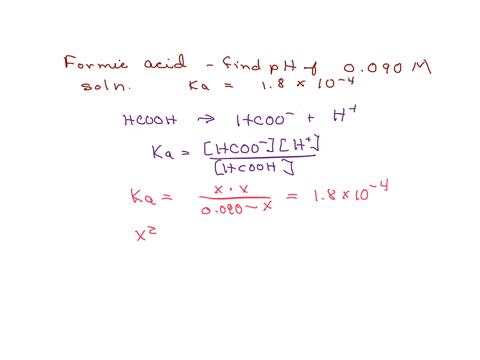 Formic acid - find pH of 0.090 M
soln. Ka = 1.8 × 10⁻⁴
HCOOH → HCOO⁻ + H⁺
Ka = [HCOO⁻][H⁺] / [HCOOH]
Ka = x · x / 0.090 - x = 1.8 × 10⁻⁴
x²